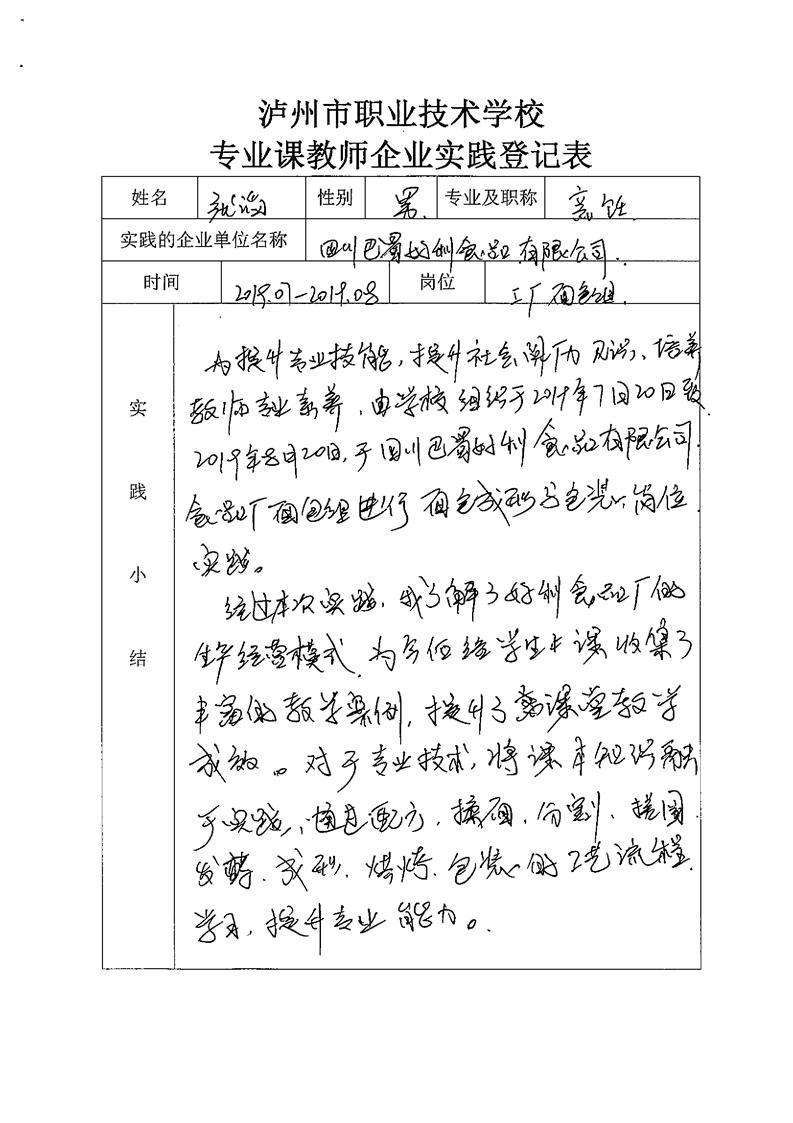 泸州市职业技术学校
专业课教师企业实践登记表
姓名 性别 男. 专业及职称 烹饪
实践的企业单位名称 四川巴蜀好利食品有限公司.
时间 2019.07-2019.08 岗位 工厂面包组.
实践小结
为提升专业技能,提升社会阅历见识、培养
教师专业素养,由学校组织于2019年7月20日致
2019年8月20日,于四川巴蜀好利食品有限公司.
食品厂面包组进行面包成型与包装岗位
实践。
经过本次实践,我了解了好利食品厂的
生产经营模式,为今后给学生上课收集了
丰富的教学案例,提升了课堂教学
成效。对于专业技术,将课本知识融
于实践,通过配方、揉面、分割、搓圆
发酵、成型、烘烤、包装的工艺流程
学习,提升专业能力。